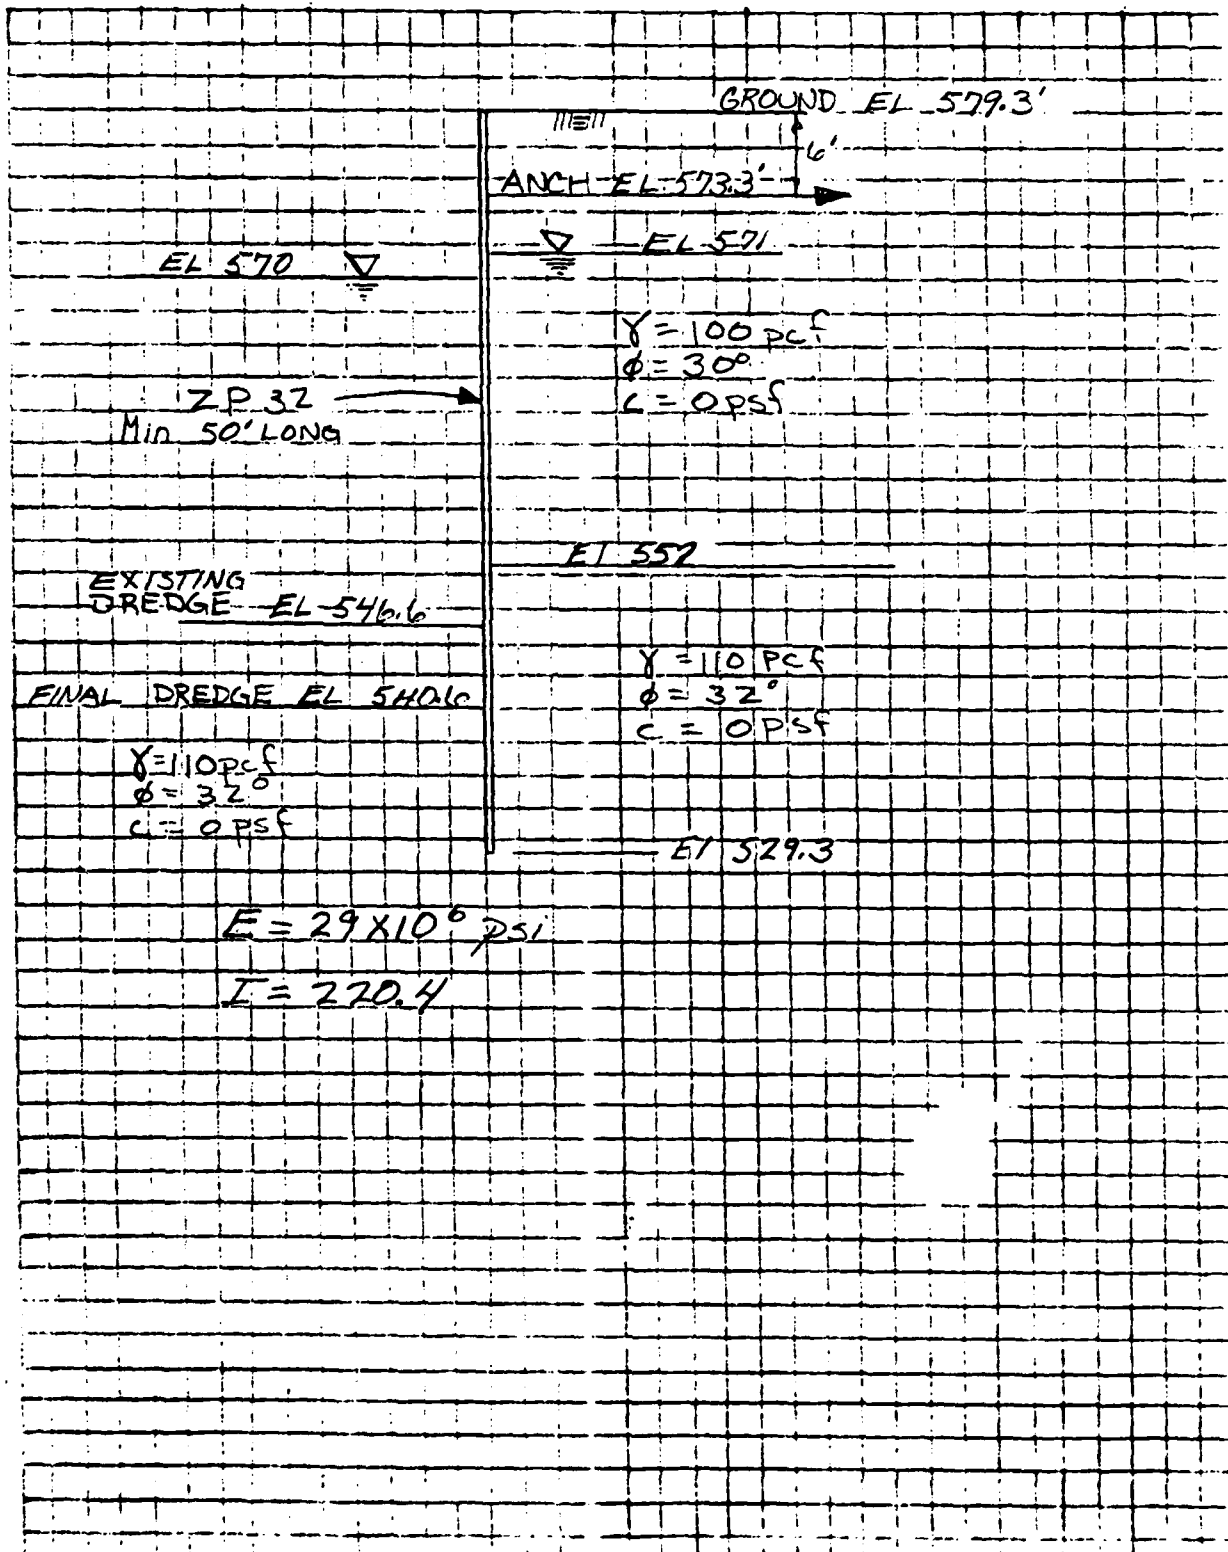 GROUND EL 579.3'
6'
ANCH EL 573.3'
EL 571
EL 570
γ = 100 pcf
φ = 30°
c = 0 psf
ZP 32
Min 50' LONG
El 552
EXISTING
DREDGE EL 546.6
FINAL DREDGE EL 540.6
γ = 110 pcf
φ = 32°
c = 0 psf
γ = 110 pcf
φ = 32°
c = 0 psf
El 529.3
E = 29 X 10⁶ psi
I = 220.4